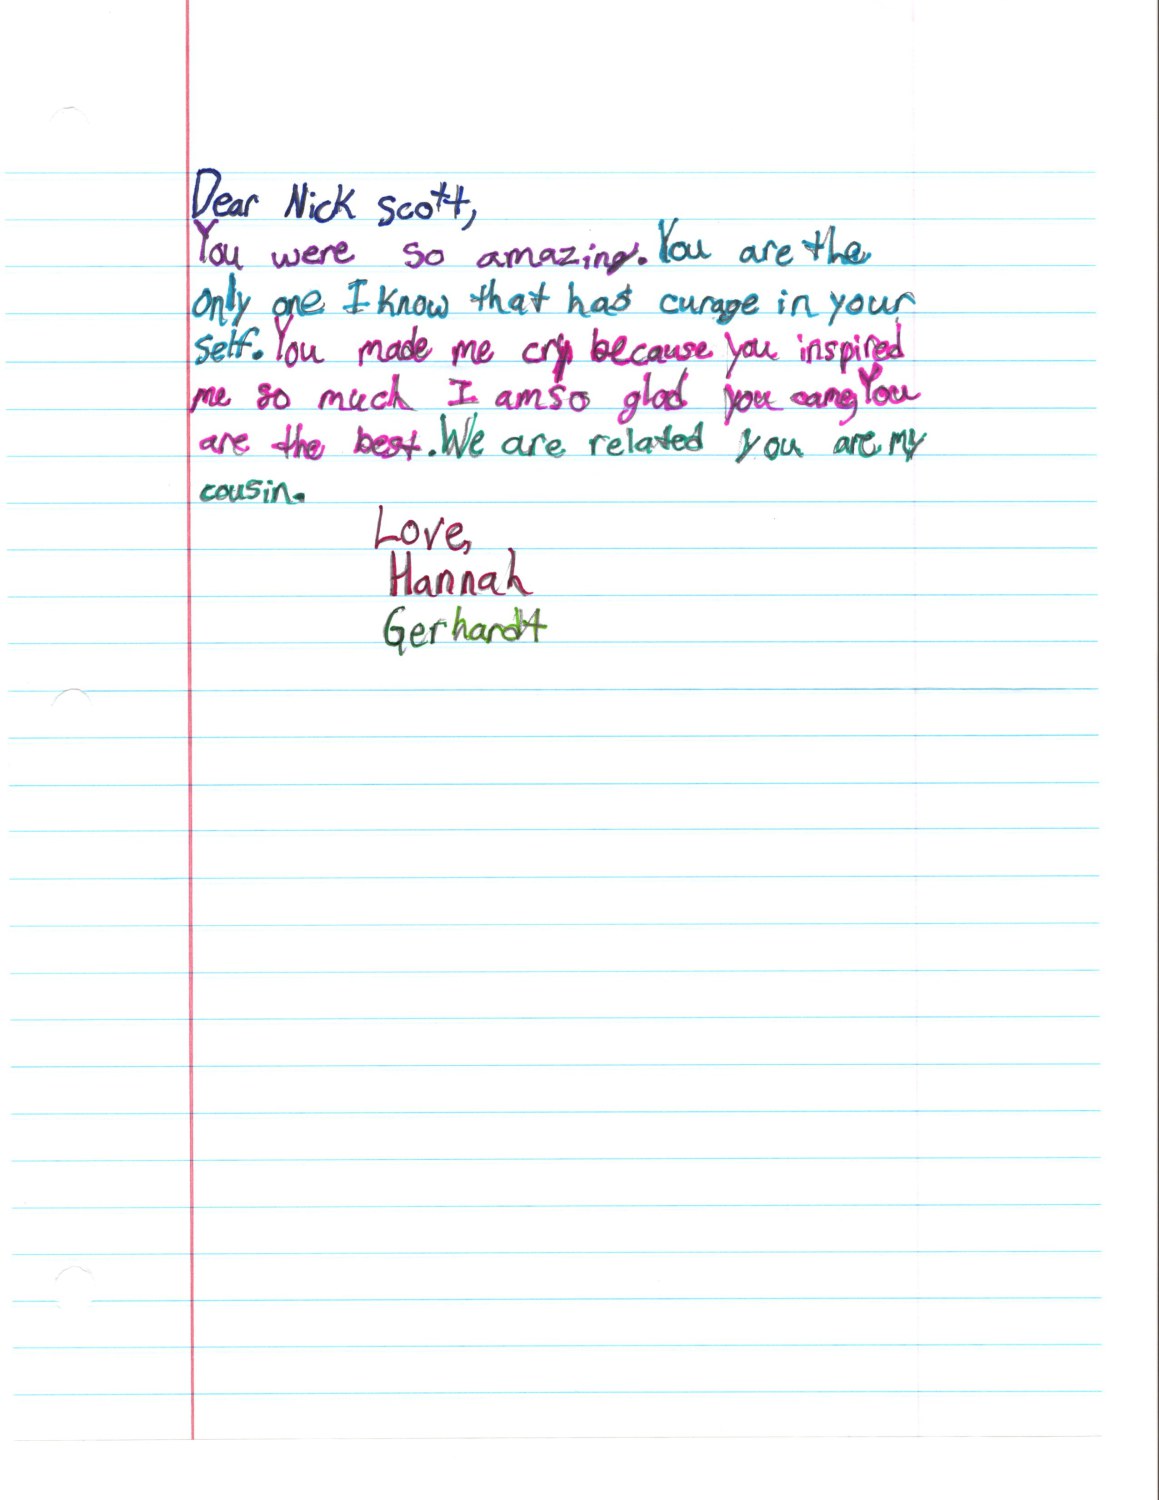 Dear Nick Scott,
You were so amazing. You are the
only one I know that has curage in your
self. You made me cry because you inspired
me so much I am so glad you came You
are the best. We are related you are my
cousin.
Love,
Hannah
Gerhardt